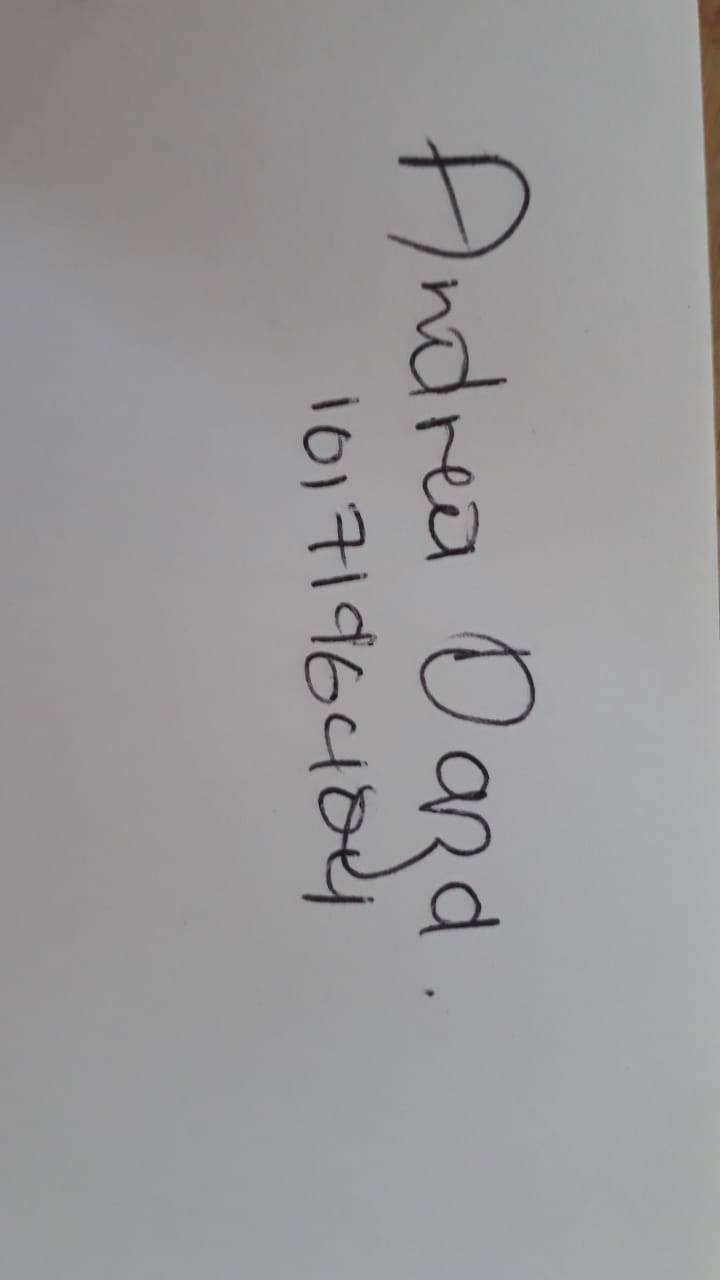 Andrea Daza.
1017196404